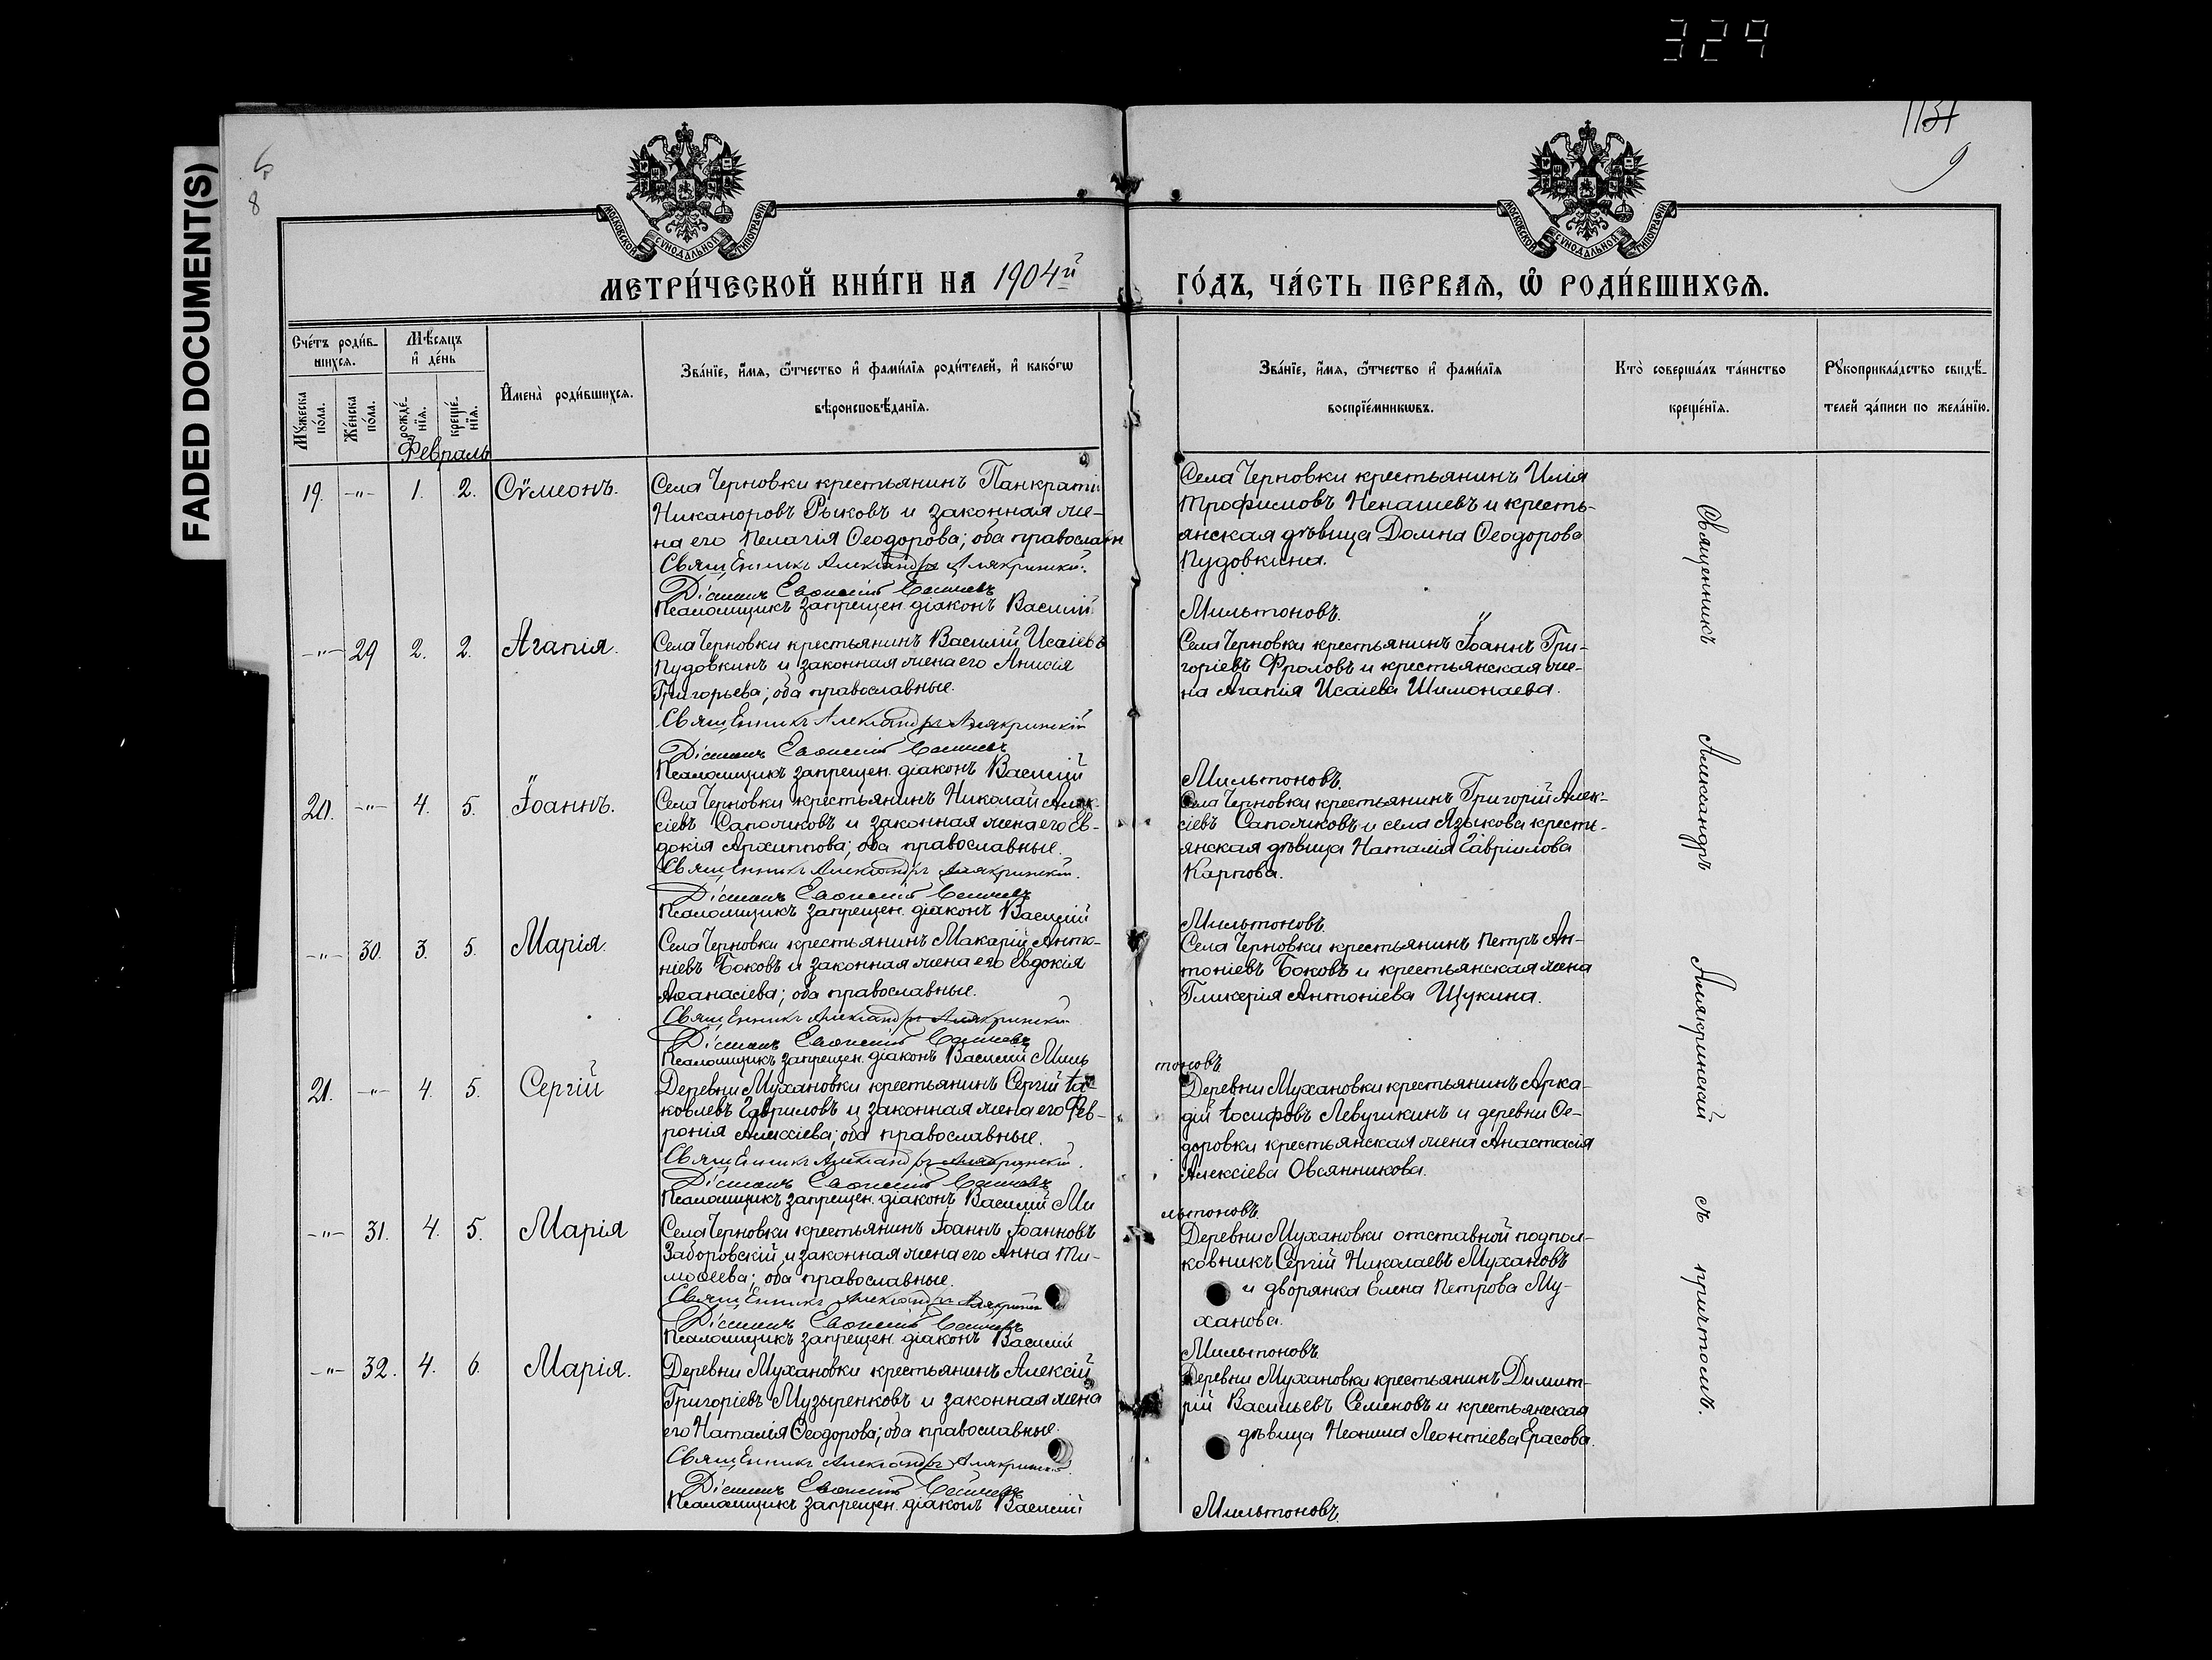 329
FADED DOCUMENT(S)
8
1131
9
МОСКОВСКОЙ СѴНОДАЛЬНОЙ ТИПОГРАФІИ
МОСКОВСКОЙ СѴНОДАЛЬНОЙ ТИПОГРАФІИ
МЕТРИ́ЧЕСКОЙ КНИ́ГИ НА 1904й ГО́ДЪ, ЧА́СТЬ ПЕРВАѦ, Ѡ҆ РОДИ́ВШИХСѦ.
Сче́тъ роди́в-
шихсѧ.
Мꙋ́жеска по́ла.
Же́нска по́ла.
Мѣ́сѧцъ
и҆ де́нь
рожде́-
нїѧ.
креще́-
нїѧ.
И҆мена̀ роди́вшихсѧ.
Зва́нїе, и҆́мѧ, ѻ҆́тчество и҆ фами́лїѧ роди́телей, и҆ како́гѡ
вѣроисповѣ́данїѧ.
Зва́нїе, и҆́мѧ, ѻ҆́тчество и҆ фами́лїѧ
воспрїе́мникѡвъ.
Кто̀ соверша́лъ та́инство
креще́нїѧ.
Рꙋкоприкла́дство свидѣ́-
телей за́писи по жела́нїю.
Февраль
19. -"- 1. 2. Сѷмеонъ.
Села Черновки крестьянинъ Панкратій
Никаноровъ Рыковъ и законная же-
на его Пелагія Ѳеодорова; оба православн
Священникъ Александръ Алякринскій.
Діаконъ
Псаломщикъ запрещен. діаконъ Василій
Села Черновки крестьянинъ Илія
Трофимовъ Ненашевъ и кресть-
янская дѣвица Домна Ѳеодорова
Пудовкина.
Мильтоновъ.
-"- 29 2. 2. Агапія.
Села Черновки крестьянинъ Василій Исаіевъ
Пудовкинъ и законная жена его Анисія
Григорьева; оба православные.
Священникъ Александръ Алякринскій
Діаконъ
Псаломщикъ запрещен. діаконъ Василій
Села Черновки крестьянинъ Іоаннъ Гри-
горіевъ Фроловъ и крестьянская же-
на Агапія Исаіева Шимонаева.
Мильтоновъ.
20. -"- 4. 5. Іоаннъ.
Села Черновки крестьянинъ Николай Алек-
сіевъ Сапожковъ и законная жена его Ев-
докія Архиппова; оба православные.
Священникъ Александръ Алякринскій.
Діаконъ
Псаломщикъ запрещен. діаконъ Василій
Села Черновки крестьянинъ Григорій Алек-
сіевъ Сапожковъ и села Языкова кресть-
янская дѣвица Наталія Гавріилова
Карпова.
Мильтоновъ.
-"- 30. 3. 5. Марія.
Села Черновки крестьянинъ Макарій Анто-
ніевъ Боковъ и законная жена его Евдокія
Аѳанасіева; оба православные.
Священникъ Александръ Алякринскій
Діаконъ
Псаломщикъ запрещен. діаконъ Василій Миль
Села Черновки крестьянинъ Петръ Ан-
тоніевъ Боковъ и крестьянская жена
Гликерія Антоніева Щукина.
тоновъ
21. -"- 4. 5. Сергій
Деревни Мухановки крестьянинъ Сергій Іа-
ковлевъ Гавриловъ и законная жена его Фев-
ронія Алексіева; оба православные.
Священникъ Александръ Алякринскій.
Діаконъ
Псаломщикъ запрещен. діаконъ Василій Ми
Деревни Мухановки крестьянинъ Арка-
дій Іосифовъ Левушкинъ и деревни Ѳе-
доровки крестьянская жена Анастасія
Алексіева Овсянникова.
льтоновъ.
-"- 31. 4. 5. Марія
Села Черновки крестьянинъ Іоаннъ Іоанновъ
Заборовскій и законная жена его Анна Ти-
моѳеева; оба православные.
Священникъ Александръ Алякринскій
Діаконъ
Псаломщикъ запрещен. діаконъ Василій
Деревни Мухановки отставной подпол-
ковникъ Сергій Николаевъ Мухановъ
и дворянка Елена Петрова Му-
ханова.
Мильтоновъ.
-"- 32. 4. 6. Марія.
Деревни Мухановки крестьянинъ Алексій
Григоріевъ Музыренковъ и законная жена
его Наталія Ѳеодорова; оба православные.
Священникъ Александръ Алякринскій.
Діаконъ
Псаломщикъ запрещен. діаконъ Василій
Деревни Мухановки крестьянинъ Димит-
рій Васильевъ Семеновъ и крестьянская
дѣвица Неонила Леонтіева Ерасова.
Мильтоновъ.
Священникъ Александръ Алякринскій съ причтомъ.